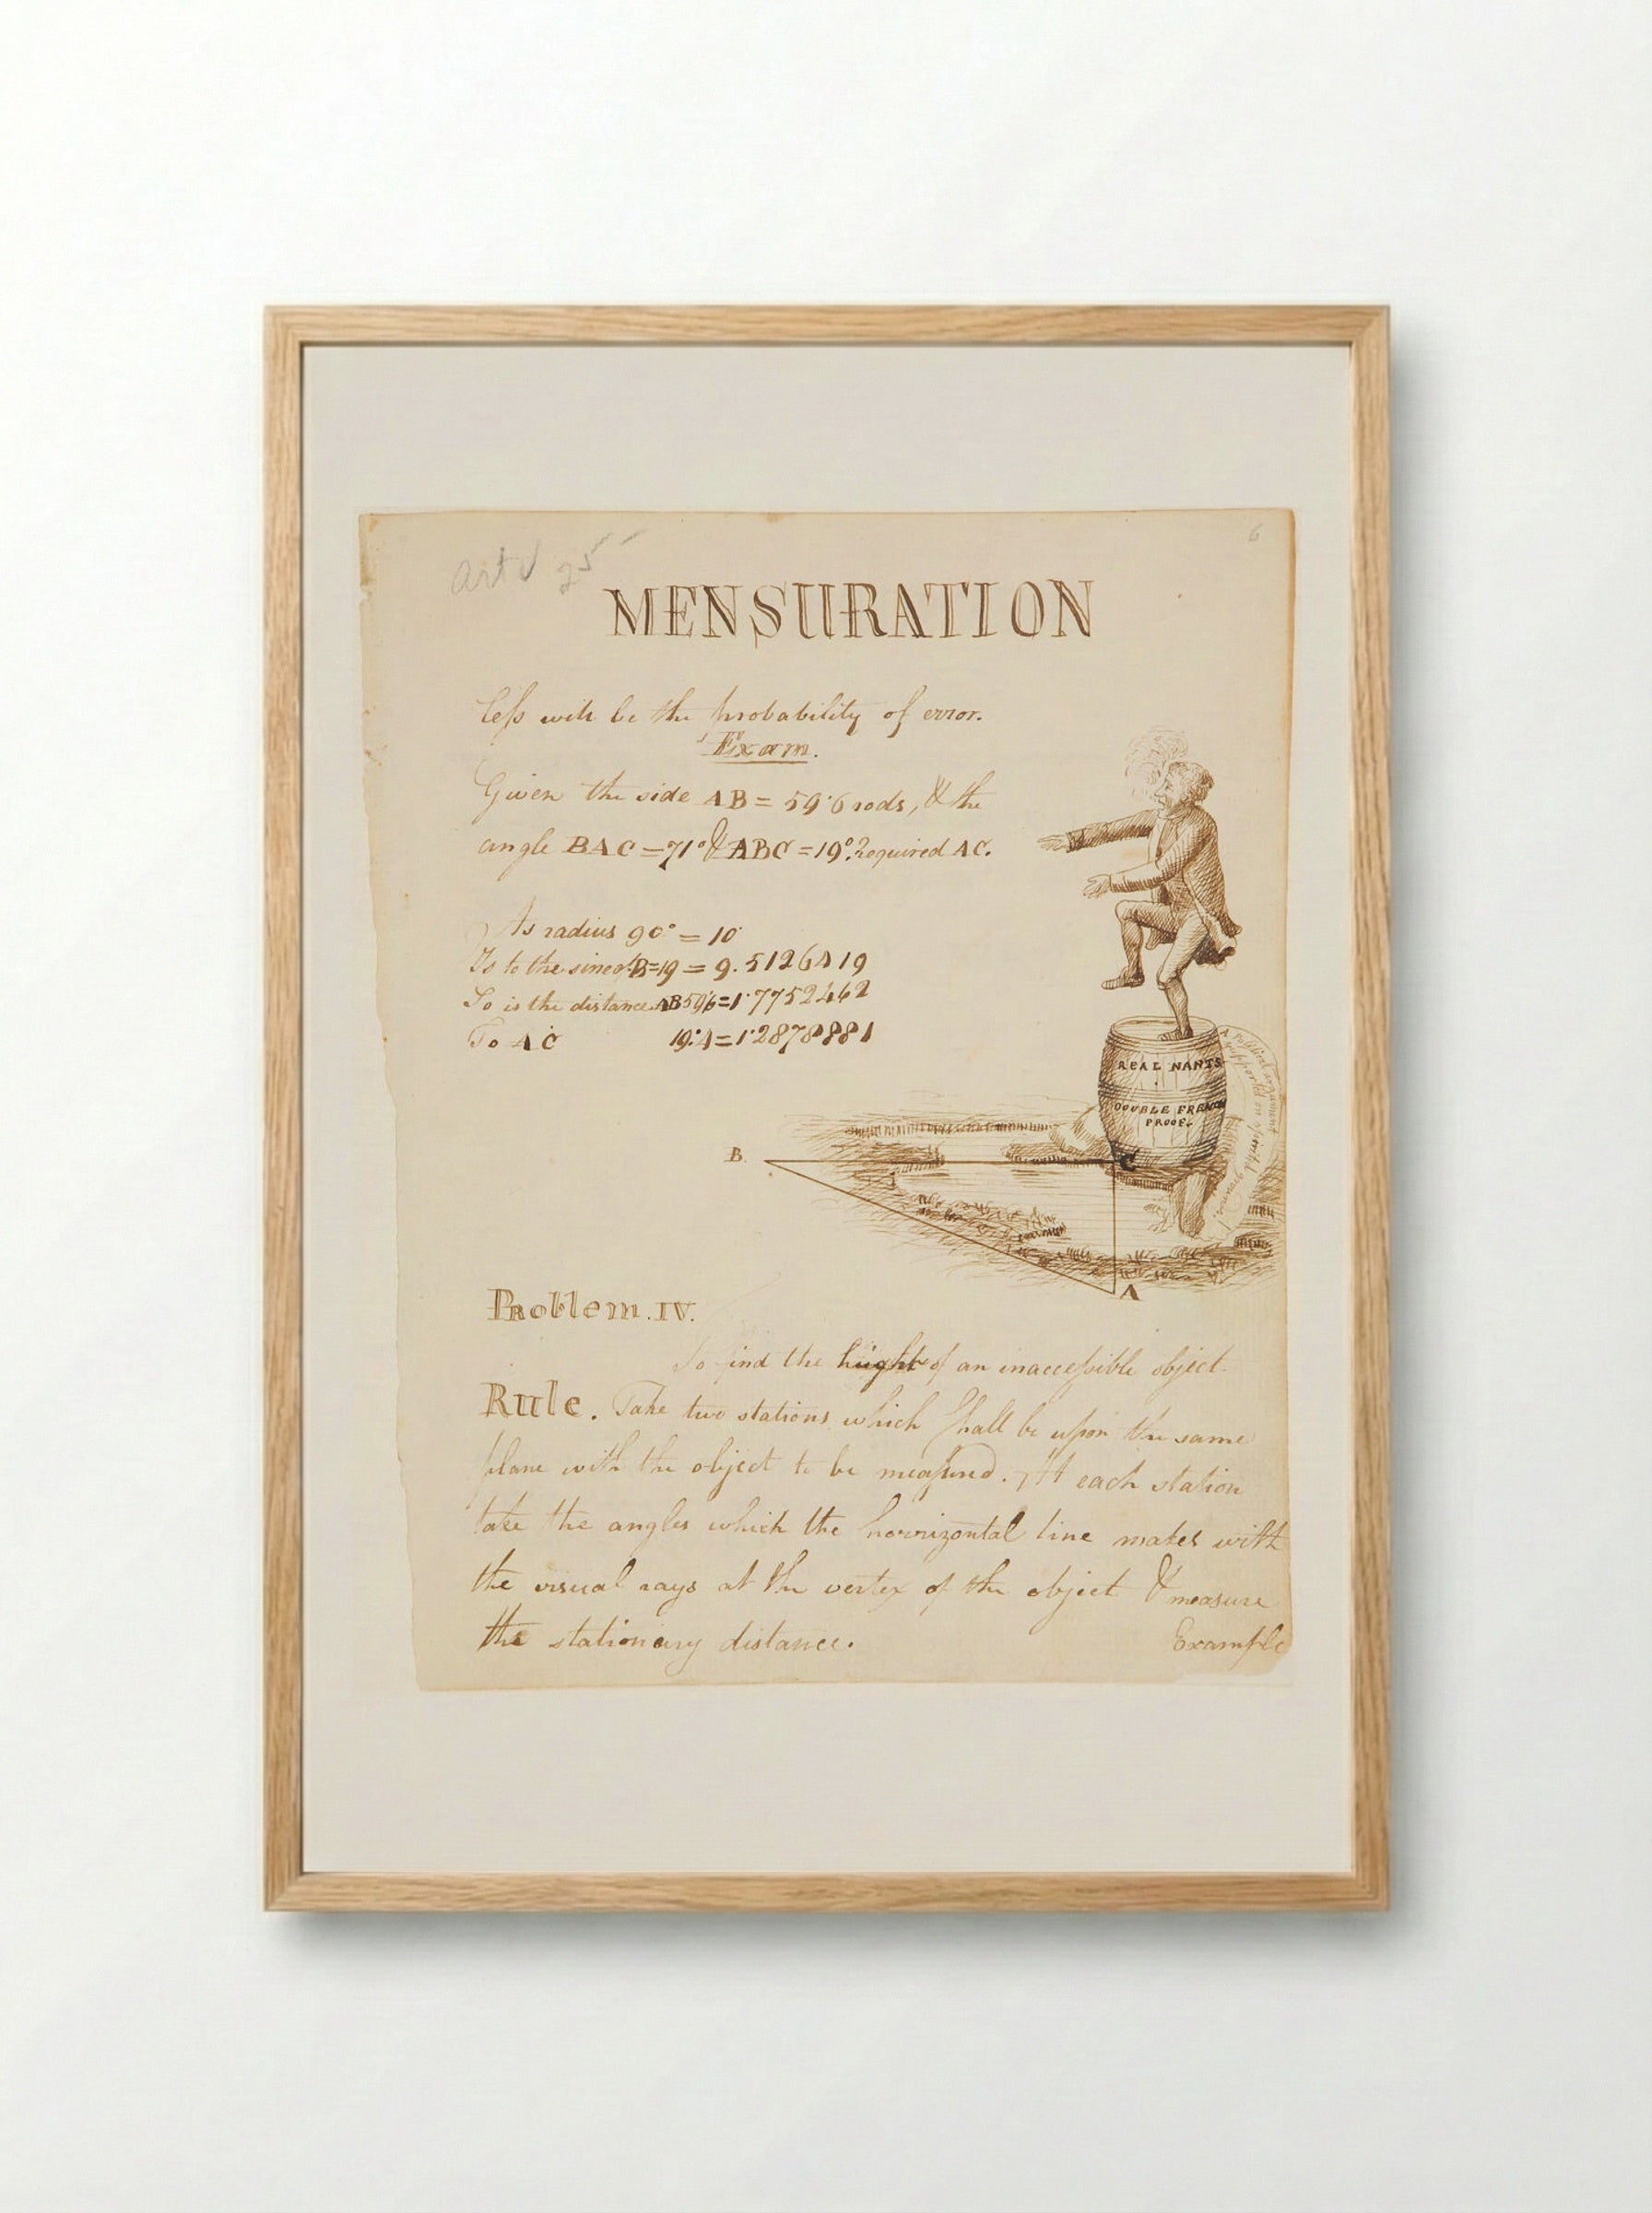 6
MENSURATION
leſs will be the probability of error.
Exam.
Given the side AB = 59.6 rods, & the
angle BAC = 71° & ABC = 19°. Required AC.
As radius 90° = 10
Is to the sine of B=19 = 9.5126419
So is the distance AB 59.6 = 1.7752462
To AC 19.4 = 1.2878881
REAL NANTS
DOUBLE FRENCH
PROOF.
A political argument
supported on
B
C
A
Problem. IV.
To find the hight of an inacceſsible object.
Rule. Take two stations which ſhall be upon the same
plane with the object to be meaſured. At each station
take the angles which the horrizontal line makes with
the visual rays at the vertex of the object & measure
the stationary distance.
Example